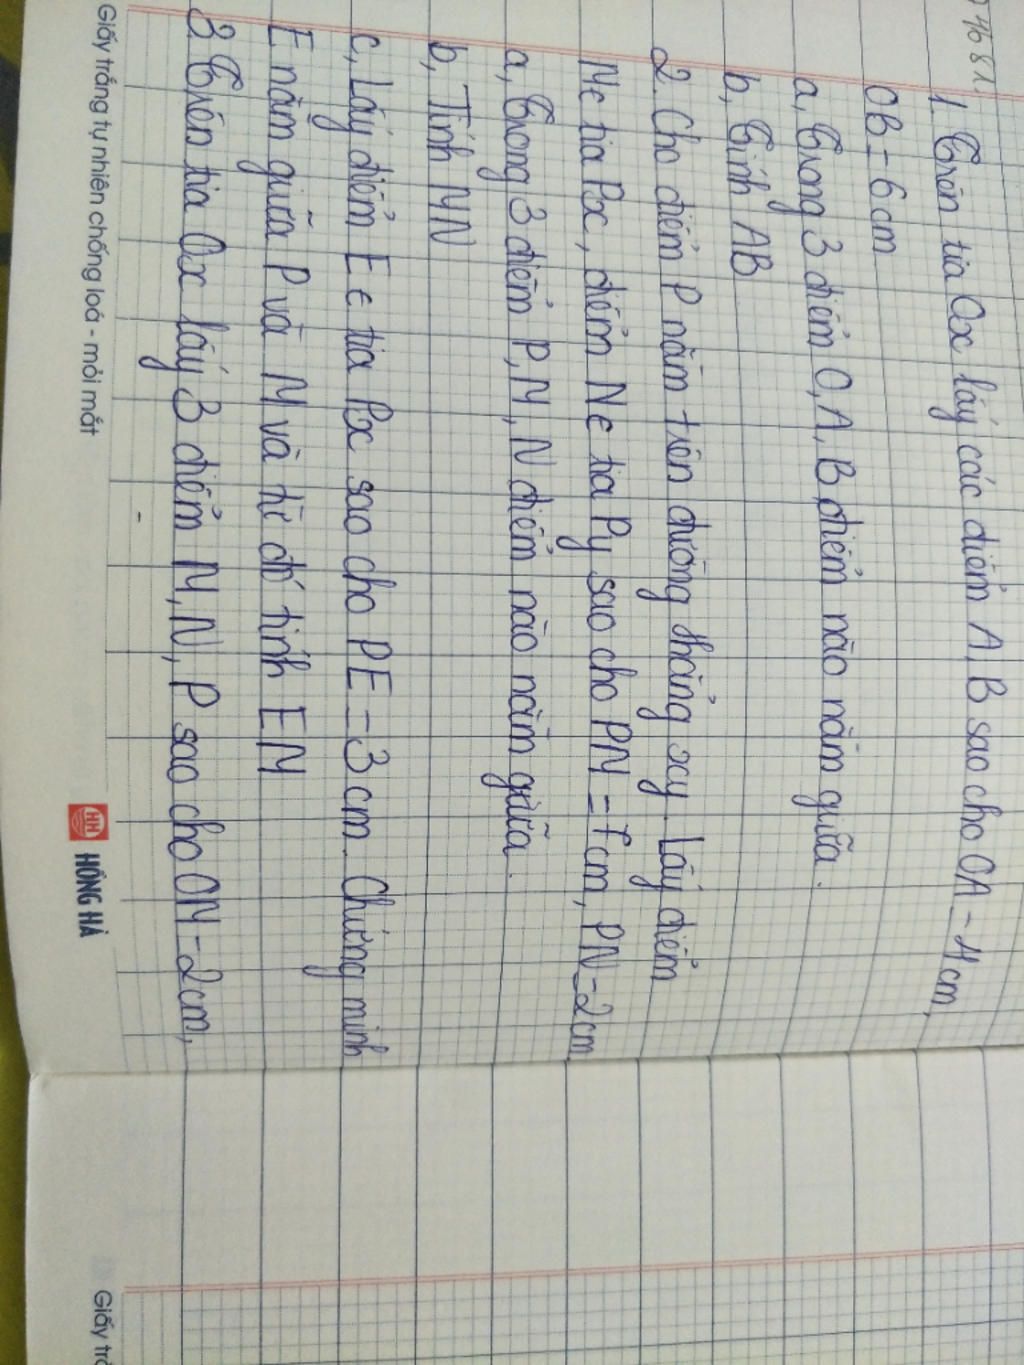 1, Trên tia Ox lấy các điểm A, B sao cho OA = 4cm,
OB = 6cm
a, Trong 3 điểm O, A, B điểm nào nằm giữa.
b, Tính AB
2. Cho điểm P nằm trên đường thẳng xy. Lấy điểm
M ∈ tia Px, điểm N ∈ tia Py sao cho PN = cm, PN = 2cm
a, Trong 3 điểm P, M, N điểm nào nằm giữa.
b, Tính MN
c, Lấy điểm E ∈ tia Px sao cho PE = 3cm. Chứng minh
E nằm giữa P và M và từ đó tính EM
3. Trên tia Ox lấy 3 điểm M, N, P sao cho OM = 2cm,
Giấy trắng tự nhiên chống loá - mỏi mắt
HH HỒNG HÀ